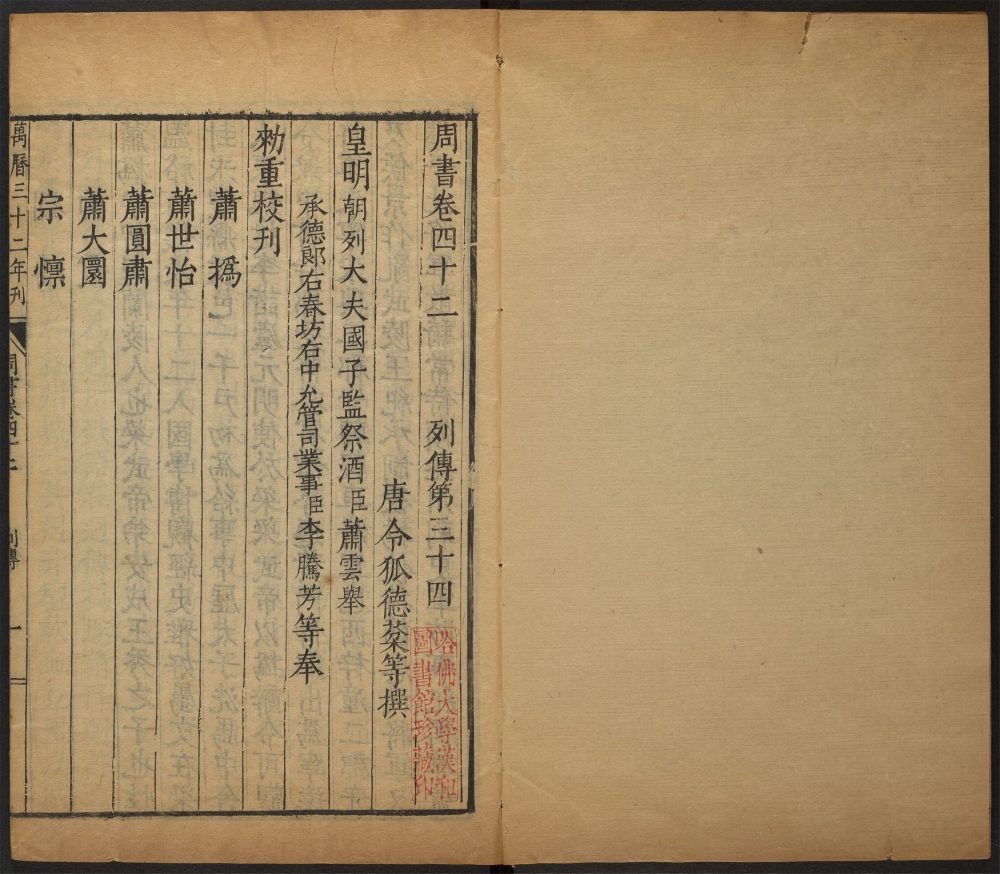 周書卷四十二 列傳第三十四
唐令狐德棻等撰
皇明朝列大夫國子監祭酒臣蕭雲舉
承德郎右春坊右中允管司業事臣李騰芳等奉
勑重校刊
蕭撝
蕭世怡
蕭圓肅
蕭大圜
宗懍
萬曆三十二年刊
周書卷四十二 列傳 一
哈佛大學漢和
圖書館珍藏印